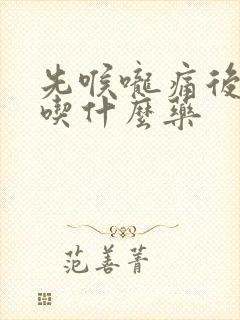 先喉嚨痛後
喫什麼藥
范善菁